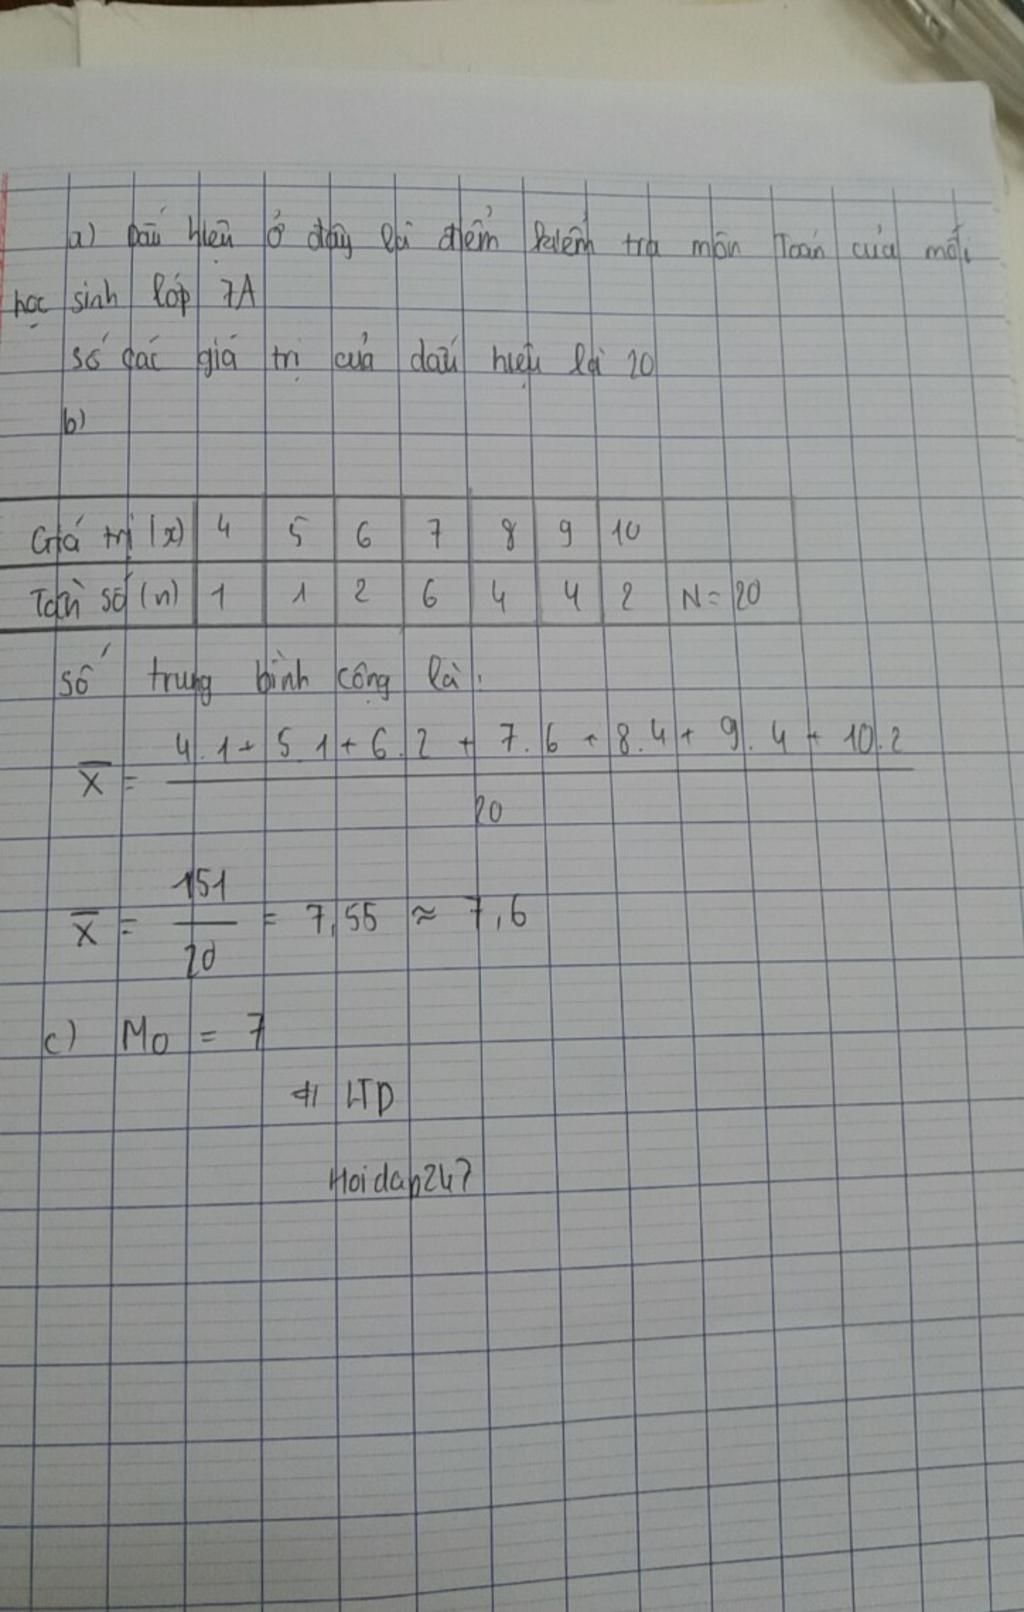 a) Dấu hiệu ở đây là điểm kiểm tra môn Toán của mỗi
học sinh lớp 7A
số các giá trị của dấu hiệu là 20
b)
Giá trị (x) 4 5 6 7 8 9 10
Tần số (n) 1 1 2 6 4 4 2 N = 20
số trung bình cộng là:
X̄ = (4.1 + 5.1 + 6.2 + 7.6 + 8.4 + 9.4 + 10.2) / 20
X̄ = 151/20 = 7,55 ≈ 7,6
c) Mo = 7
# LTD
Hoidap247